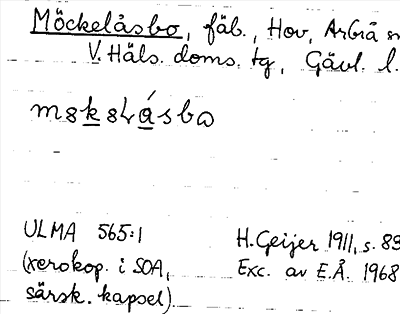 Möckelåsbo, fäb., Hov, Arbrå sn
V. Häls. doms. tg, Gävl. l.
ULMA 565:1
(xerokop. i SOA,
särsk. kapsel)
H. Geijer 1911, s. 89
Exc. av E.Å. 1968